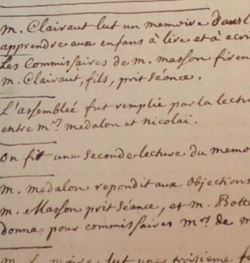 M. Clairaut lut un memoire dans l
apprendre aux enfans à lire et à ecri
Les Commissaires de M. Masson firen
M. Clairaut, fils, prit séance.
L'assembleé fut remplie par la lectu
entre Mrs medalon et Nicolaï.
On fit une seconde lecture du memo
M. medalon repondit aux Objections
M. Masson prit séance, et M. Bott
donna pour commissaires Mrs de M
lut une troisieme f